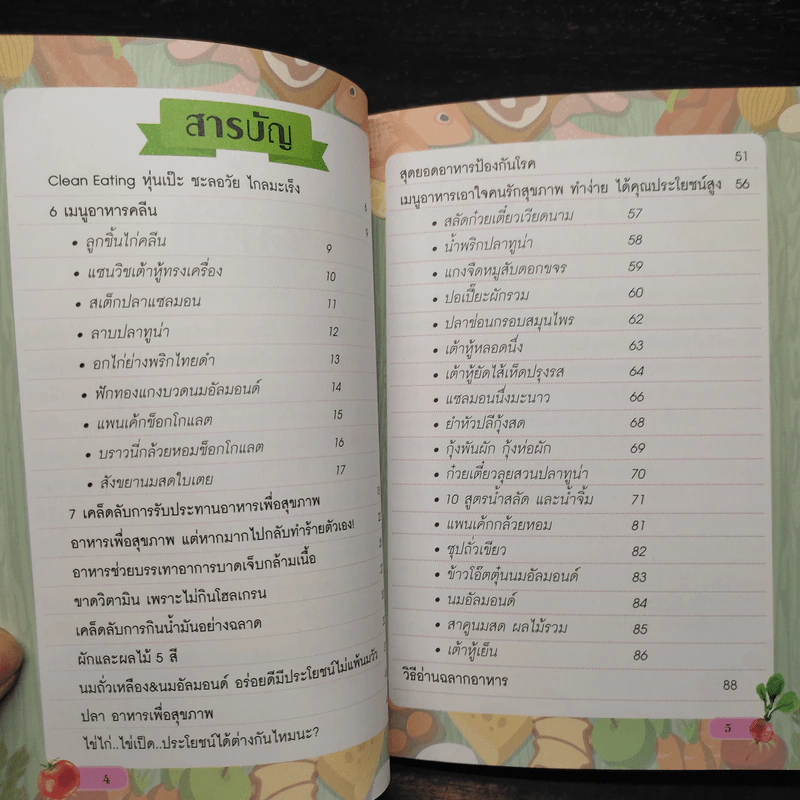 สารบัญ
Clean Eating หุ่นเป๊ะ ชะลอวัย ไกลมะเร็ง 6
6 เมนูอาหารคลีน 9
• ลูกชิ้นไก่คลีน 9
• แซนวิชเต้าหู้ทรงเครื่อง 10
• สเต็กปลาแซลมอน 11
• ลาบปลาทูน่า 12
• อกไก่ย่างพริกไทยดำ 13
• ฟักทองแกงบวดนมอัลมอนด์ 14
• แพนเค้กช็อกโกแลต 15
• บราวนี่กล้วยหอมช็อกโกแลต 16
• สังขยานมสดใบเตย 17
7 เคล็ดลับการรับประทานอาหารเพื่อสุขภาพ
อาหารเพื่อสุขภาพ แต่หากมากไปกลับทำร้ายตัวเอง!
อาหารช่วยบรรเทาอาการบาดเจ็บกล้ามเนื้อ
ขาดวิตามิน เพราะไม่กินโฮลเกรน
เคล็ดลับการกินน้ำมันอย่างฉลาด
ผักและผลไม้ 5 สี
นมถั่วเหลือง&นมอัลมอนด์ อร่อยดีมีประโยชน์ไม่แพ้นมวัว
ปลา อาหารเพื่อสุขภาพ
ไข่ไก่..ไข่เป็ด..ประโยชน์ได้ต่างกันไหมนะ?
4
สุดยอดอาหารป้องกันโรค 51
เมนูอาหารเอาใจคนรักสุขภาพ ทำง่าย ได้คุณประโยชน์สูง 56
• สลัดก๋วยเตี๋ยวเวียดนาม 57
• น้ำพริกปลาทูน่า 58
• แกงจืดหมูสับดอกขจร 59
• ปอเปี๊ยะผักรวม 60
• ปลาช่อนกรอบสมุนไพร 62
• เต้าหู้หลอดนึ่ง 63
• เต้าหู้ยัดไส้เห็ดปรุงรส 64
• แซลมอนนึ่งมะนาว 66
• ยำหัวปลีกุ้งสด 68
• กุ้งพันผัก กุ้งห่อผัก 69
• ก๋วยเตี๋ยวลุยสวนปลาทูน่า 70
• 10 สูตรน้ำสลัด และน้ำจิ้ม 71
• แพนเค้กกล้วยหอม 81
• ซุปถั่วเขียว 82
• ข้าวโอ๊ตตุ๋นนมอัลมอนด์ 83
• นมอัลมอนด์ 84
• สาคูนมสด ผลไม้รวม 85
• เต้าหู้เย็น 86
วิธีอ่านฉลากอาหาร 88
5